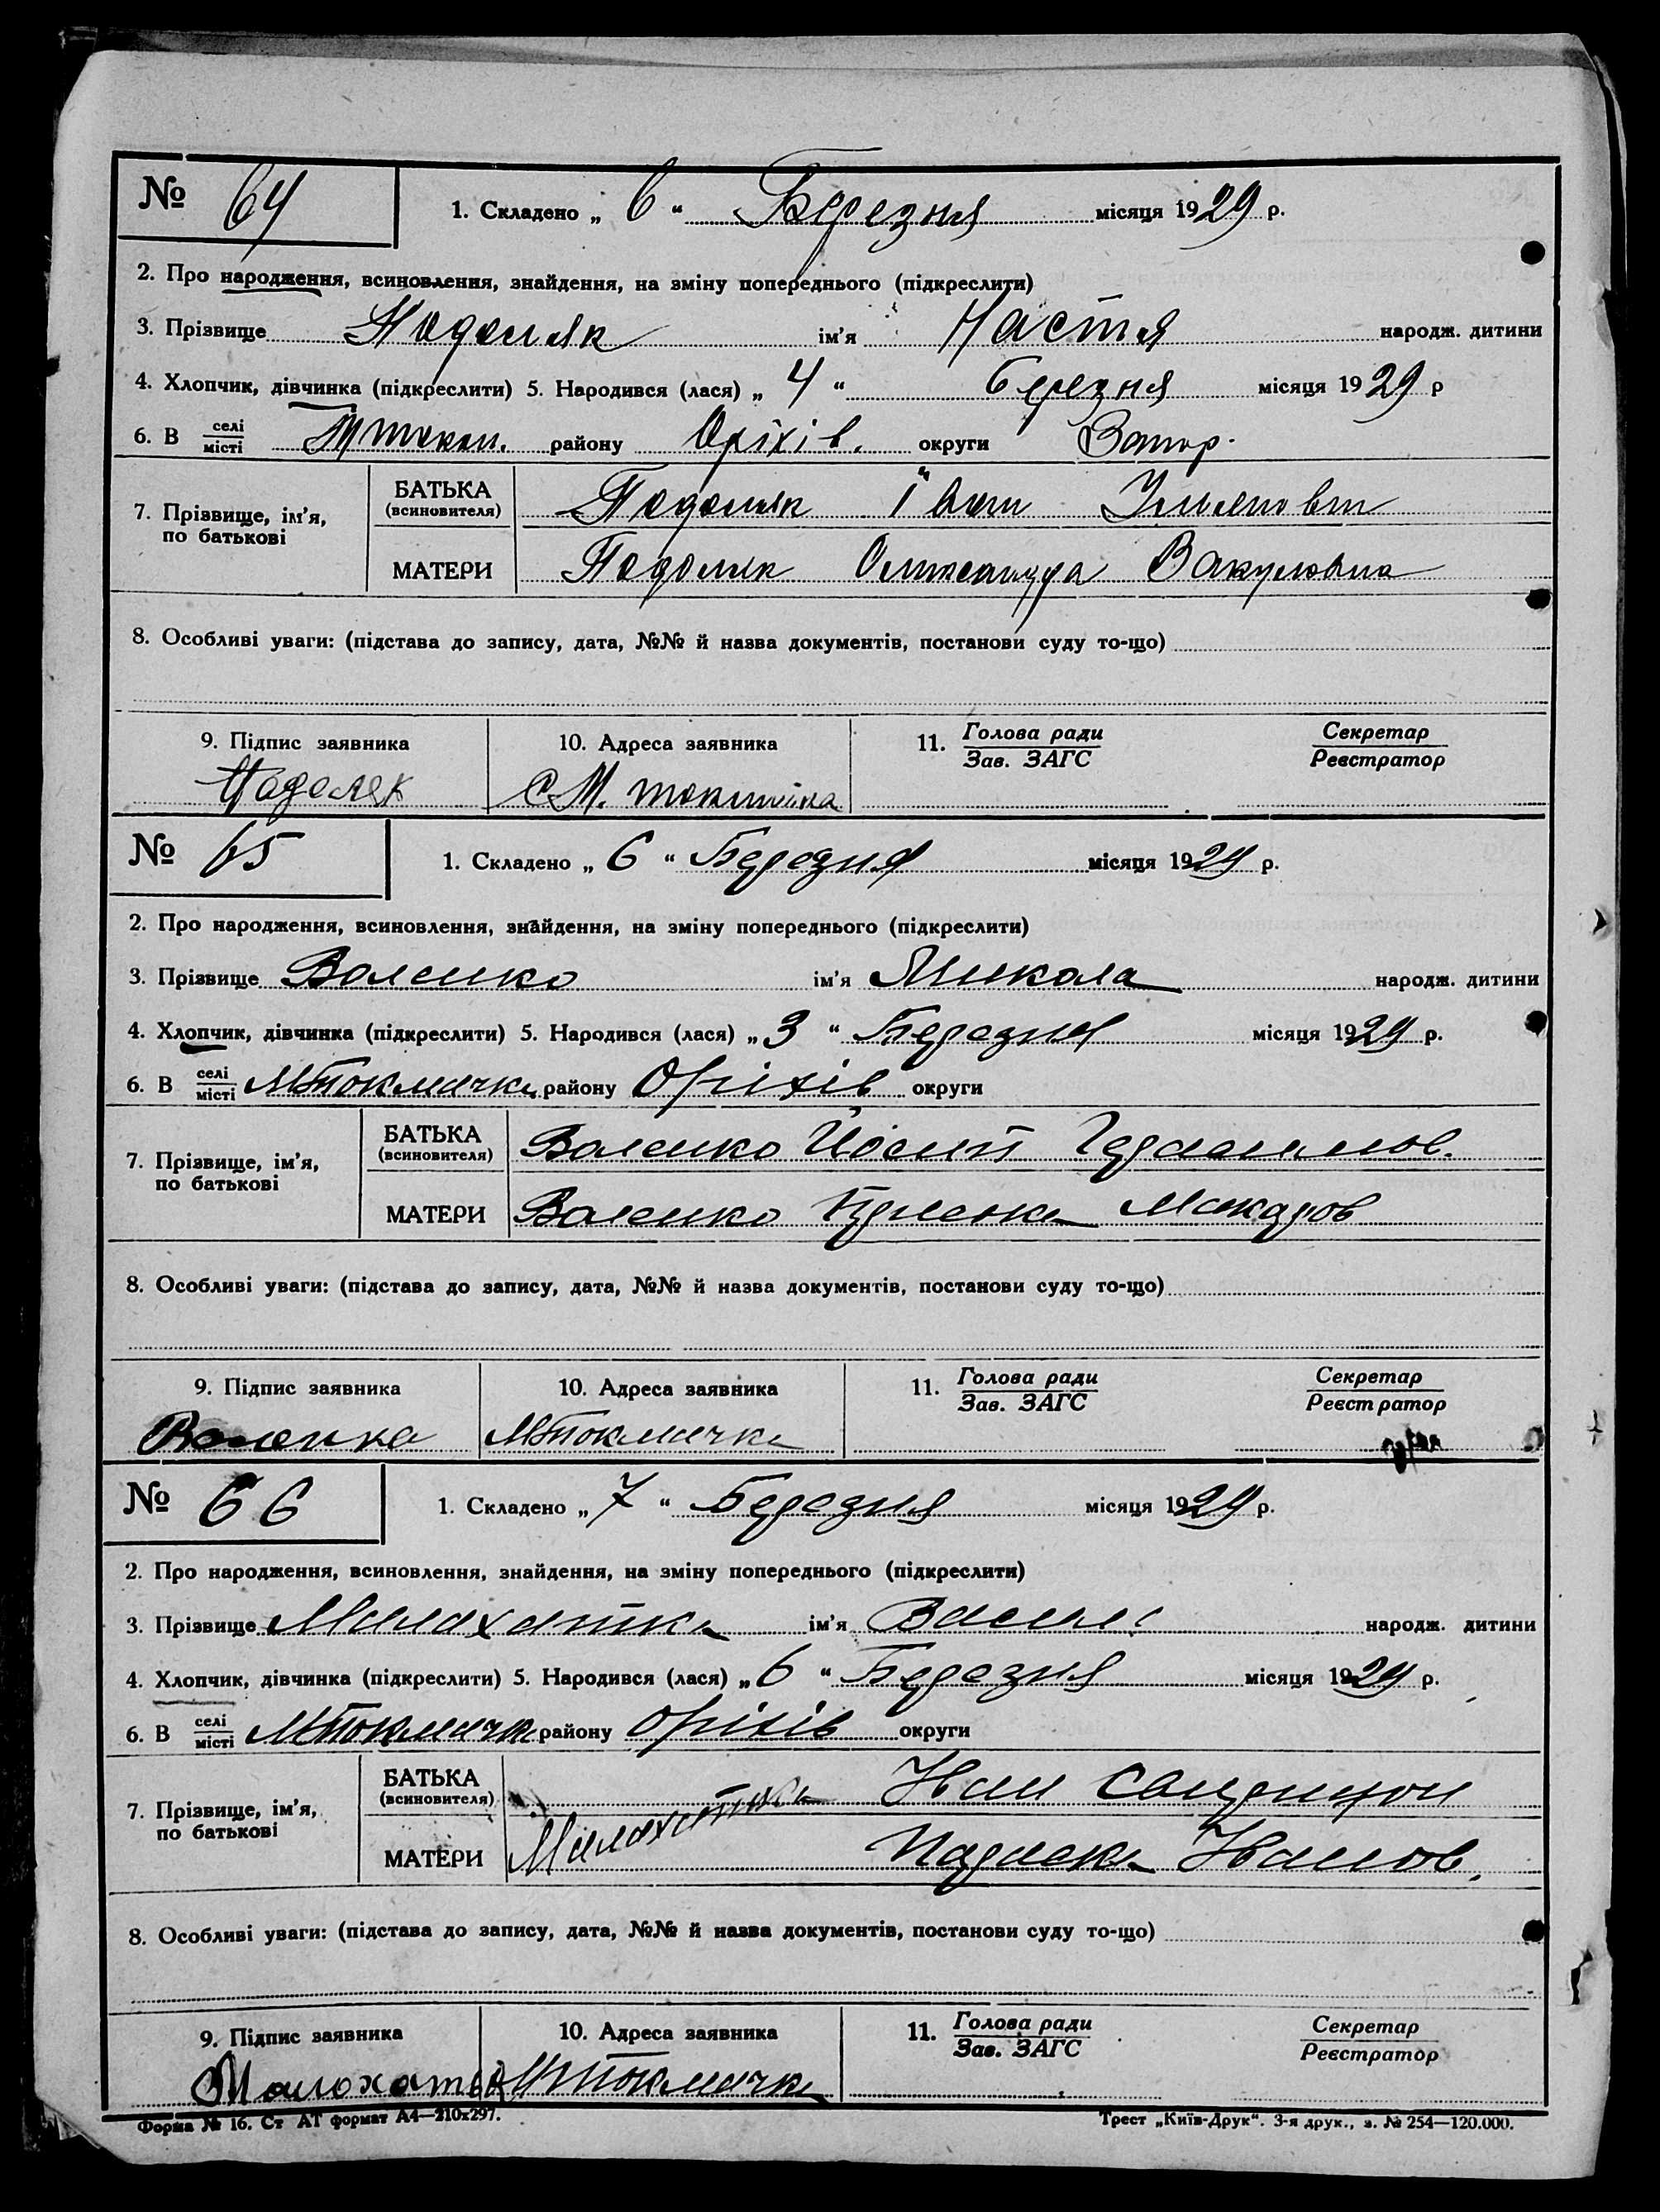 № 64 1. Складено „ 6 “ Березня місяця 1929 р.
2. Про народження, всиновлення, знайдення, на зміну попереднього (підкреслити)
3. Прізвище Подоляк ім'я Настя народж. дитини
4. Хлопчик, дівчинка (підкреслити) 5. Народився (лася) „ 4 “ березня місяця 1929 р
6. В селі/місті району Оріхів. округи Запор.
7. Прізвище, ім'я, по батькові БАТЬКА (всиновителя) Подоляк Іван
МАТЕРИ Подоляк Олександра Вакуловна
8. Особливі уваги: (підстава до запису, дата, №№ й назва документів, постанови суду то-що)
9. Підпис заявника 10. Адреса заявника 11. Голова ради/Зав. ЗАГС Секретар/Реєстратор
Подоляк С М.
№ 65 1. Складено „ 6 “ Березня місяця 1929 р.
2. Про народження, всиновлення, знайдення, на зміну попереднього (підкреслити)
3. Прізвище Воленко ім'я Микола народж. дитини
4. Хлопчик, дівчинка (підкреслити) 5. Народився (лася) „ 3 “ Березня місяця 1929 р.
6. В селі/місті МТокмачка району Оріхів округи
7. Прізвище, ім'я, по батькові БАТЬКА (всиновителя) Воленко Йосип Герасимов.
МАТЕРИ Воленко Макаров
8. Особливі уваги: (підстава до запису, дата, №№ й назва документів, постанови суду то-що)
9. Підпис заявника 10. Адреса заявника 11. Голова ради/Зав. ЗАГС Секретар/Реєстратор
Воленко МТокмачка
№ 66 1. Складено „ 7 “ Березня місяця 1929 р.
2. Про народження, всиновлення, знайдення, на зміну попереднього (підкреслити)
3. Прізвище Малахатка ім'я Василь народж. дитини
4. Хлопчик, дівчинка (підкреслити) 5. Народився (лася) „ 6 “ Березня місяця 1929 р.
6. В селі/місті МТокмачка району Оріхів округи
7. Прізвище, ім'я, по батькові БАТЬКА (всиновителя) Малахатка Іван
МАТЕРИ Параска Іванов.
8. Особливі уваги: (підстава до запису, дата, №№ й назва документів, постанови суду то-що)
9. Підпис заявника 10. Адреса заявника 11. Голова ради/Зав. ЗАГС Секретар/Реєстратор
Малохатка МТокмачка
Форма № 16. Ст АТ формат А4—210x297. Трест „Київ-Друк“. 3-я друк., з. № 254—120.000.